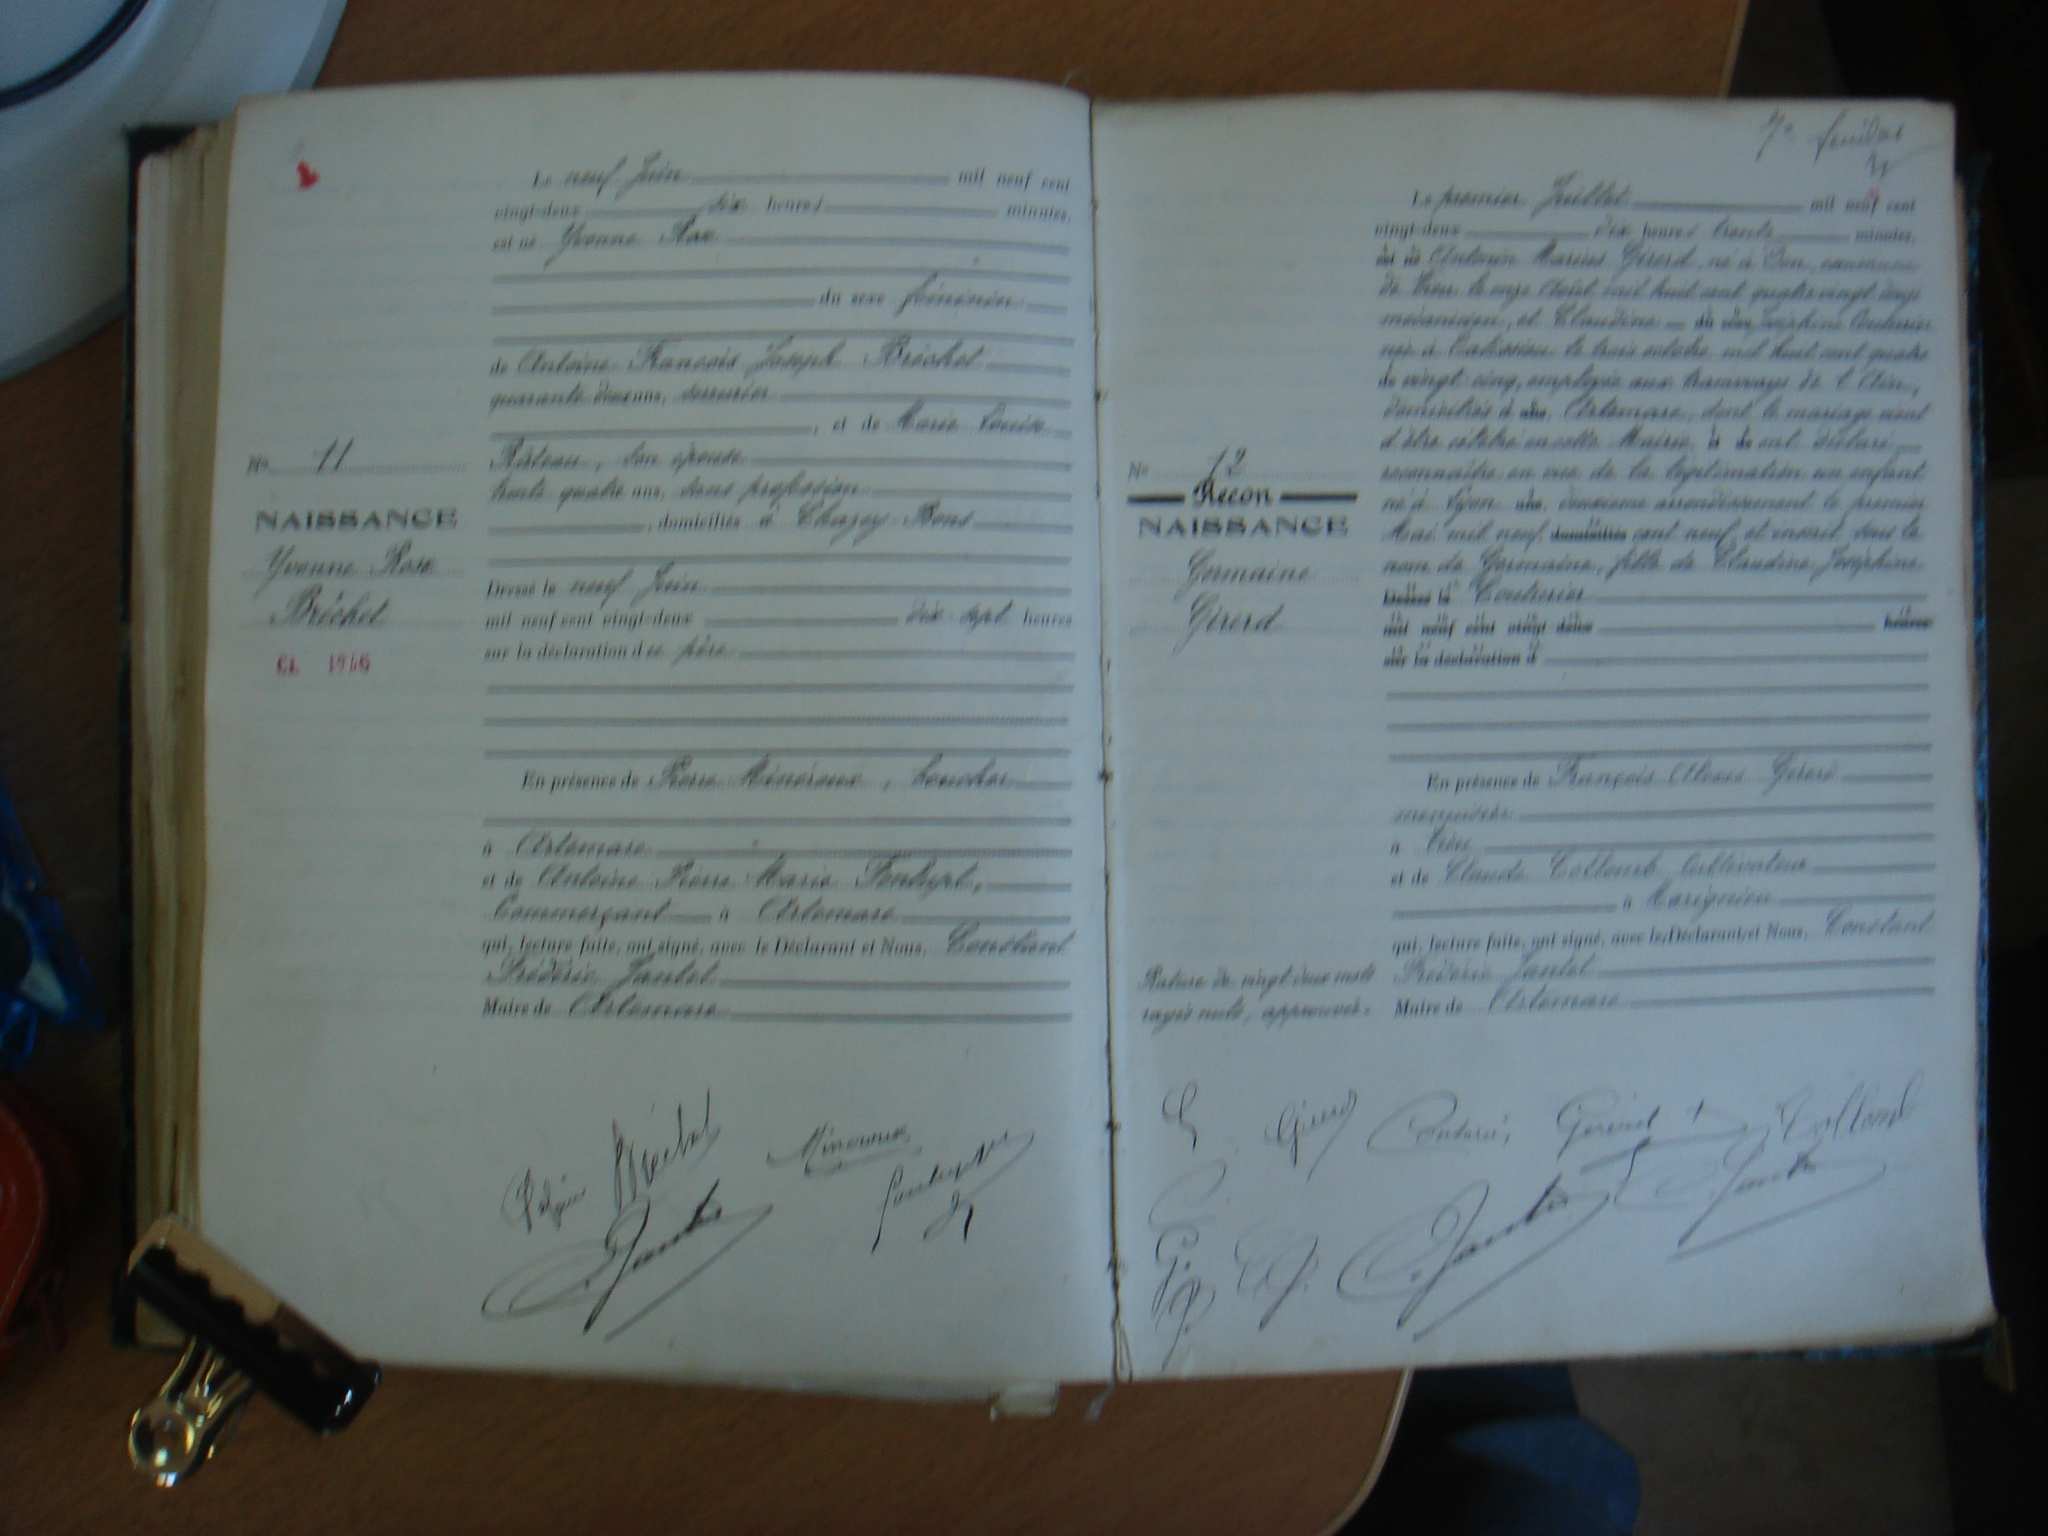 Le neuf Juin mil neuf cent
vingt-deux dix heures minutes,
est né Yvonne Rose
du sexe féminin
de Antoine François Joseph Bréchet
quarante deux ans, serrurier
, et de Marie Louise
Rateau, son épouse
trente quatre ans, sans profession
, domiciliés à Chazey-Bons
Dressé le neuf Juin
mil neuf cent vingt-deux dix-sept heures
sur la déclaration du père
En présence de Pierre Minéroux, boucher
à Artemare
et de Antoine Pierre Marie
Commerçant à Artemare
qui, lecture faite, ont signé, avec le Déclarant et Nous, Constant
Frédéric Jantet
Maire de Artemare
No 11
NAISSANCE
Yvonne Rose
Bréchet
Bréchet
Minéroux
Jantet
7e feuillet
Le premier Juillet mil neuf cent
vingt-deux dix heures trente minutes,
est né Antonin Marius Girerd, né à Don, commune
de Vieu le onze Août mil huit cent quatre vingt onze
mécanicien, et Claudine Joséphine Couturier
née à le trois octobre mil huit cent quatre
de vingt cinq, employée aux tramways de l'Ain,
domiciliés à Artemare, dont le mariage vient
d'être célébré en cette Mairie, ont déclaré
reconnaître en vue de la légitimation un enfant
né à Lyon deuxième arrondissement le premier
Mai mil neuf domiciliés cent neuf, et inscrit sous le
nom de Germaine, fille de Claudine Joséphine
Dressé le Couturier
mil neuf cent vingt-deux heures
sur la déclaration d
En présence de François Girerd
menuisier
à Vieu
et de Claude Collomb cultivateur
à Marignieu
qui, lecture faite, ont signé, avec le Déclarant et Nous, Constant
Frédéric Jantet
Maire de Artemare
No 12
Recon
NAISSANCE
Germaine
Girerd
Rature de vingt-deux mots
rayés nuls, approuvés.
Girerd Couturier Girerd Collomb
Jantet Jantet